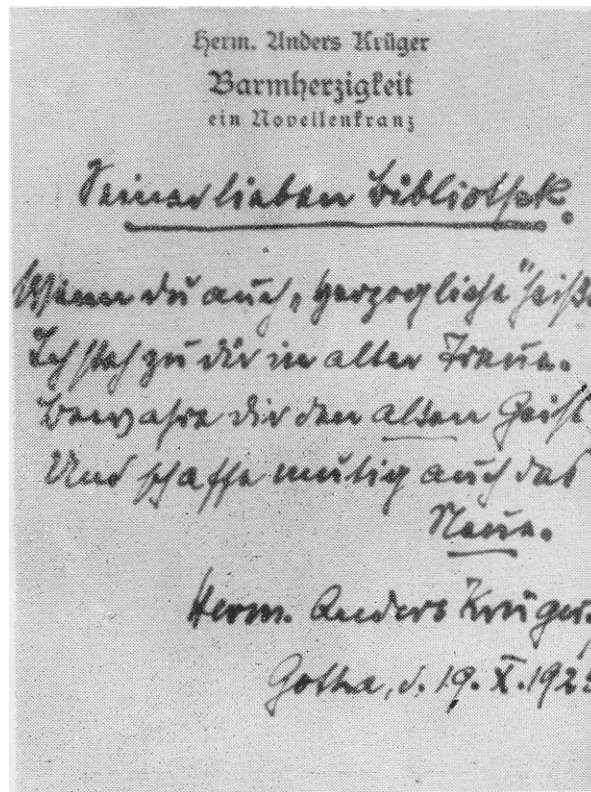 Herm. Anders Krüger
Barmherzigkeit
ein Novellenkranz
Seiner lieben Bibliothek.
Wenn du auch „Herzogliche“ heiß
Ich steh zu dir in alter Treue.
Bewahre dir den alten Geist
Und schaffe mutig auch das
Neue.
Herm. Anders Krüger.
Gotha, d. 19. X. 192